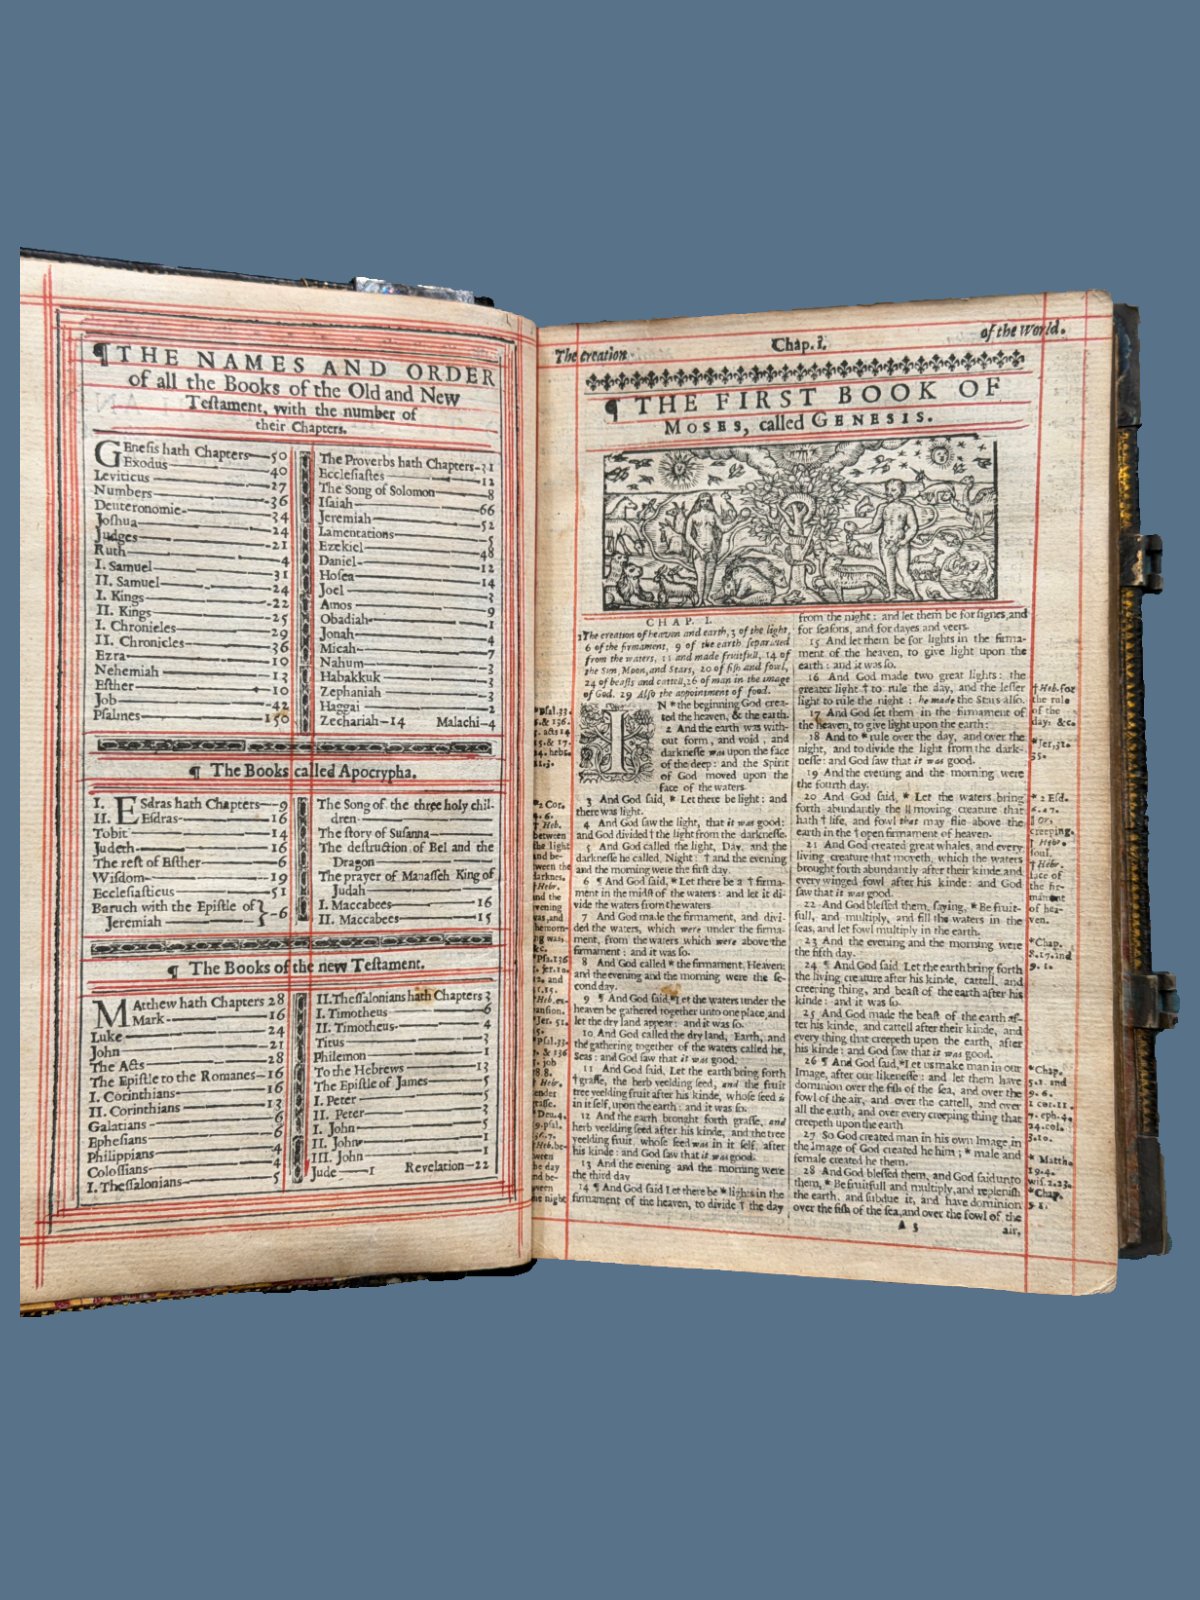 ¶ THE NAMES AND ORDER
of all the Books of the Old and New
Teſtament, with the number of
their Chapters.
GEneſis hath Chapters—50
Exodus—40
Leviticus—27
Numbers—36
Deuteronomie—34
Joſhua—24
Judges—21
Ruth—4
I. Samuel—31
II. Samuel—24
I. Kings—22
II. Kings—25
I. Chronicles—29
II. Chronicles—36
Ezra—10
Nehemiah—13
Eſther—10
Job—42
Pſalmes—150
The Proverbs hath Chapters-31
Eccleſiaſtes—12
The Song of Solomon—8
Iſaiah—66
Jeremiah—52
Lamentations—5
Ezekiel—48
Daniel—12
Hoſea—14
Joel—3
Amos—9
Obadiah—1
Jonah—4
Micah—7
Nahum—3
Habakkuk—3
Zephaniah—3
Haggai—2
Zechariah—14 Malachi—4
¶ The Books called Apocrypha.
I. ESdras hath Chapters—9
II. Eſdras—16
Tobit—14
Judeth—16
The reſt of Eſther—6
Wiſdom—19
Eccleſiaſticus—51
Baruch with the Epiſtle of
Jeremiah—} -6
The Song of the three holy chil-
dren—
The ſtory of Suſanna—
The deſtruction of Bel and the
Dragon—
The prayer of Manaſſeh King of
Judah—
I. Maccabees—16
II. Maccabees—15
¶ The Books of the new Teſtament.
MAtthew hath Chapters 28
Mark—16
Luke—24
John—21
The Acts—28
The Epiſtle to the Romanes—16
I. Corinthians—16
II. Corinthians—13
Galatians—6
Epheſians—6
Philippians—4
Coloſſians—4
I. Theſſalonians—5
II. Theſſalonians hath Chapters 3
I. Timotheus—6
II. Timotheus—4
Titus—3
Philemon—1
To the Hebrews—13
The Epiſtle of James—5
I. Peter—5
II. Peter—3
I. John—5
II. John—1
III. John—1
Jude—1 Revelation—22
The creation Chap. I. of the World.
¶ THE FIRST BOOK OF
MOSES, called GENESIS.
CHAP. I.
1 The creation of heaven and earth, 3 of the light,
6 of the firmament, 9 of the earth ſeparated
from the waters, 11 and made fruitfull, 14 of
the Sun, Moon, and Stars, 20 of fiſh and fowl,
24 of beaſts and cattell, 26 of man in the image
of God. 29 Alſo the appointment of food.
IN * the beginning God crea-
ted the heaven, & the earth.
2 And the earth was with-
out form, and void, and
darkneſſe was upon the face
of the deep: and the Spirit
of God moved upon the
face of the waters
3 And God ſaid, * Let there be light: and
there was light.
4 And God ſaw the light, that it was good:
and God divided † the light from the darkneſſe.
5 And God called the light, Day, and the
darkneſſe he called, Night: † and the evening
and the morning were the firſt day.
6 ¶ And God ſaid, * Let there be a † firma-
ment in the midſt of the waters: and let it di-
vide the waters from the waters
7 And God made the firmament, and divi-
ded the waters, which were under the firma-
ment, from the waters which were above the
firmament: and it was ſo.
8 And God called * the firmament, Heaven:
and the evening and the morning were the ſe-
cond day.
9 ¶ And God ſaid, * Let the waters under the
heaven be gathered together unto one place, and
let the dry land appear: and it was ſo.
10 And God called the dry land, Earth, and
the gathering together of the waters called he,
Seas: and God ſaw that it was good.
11 And God ſaid, Let the earth bring forth
† graſſe, the herb yeelding ſeed, and the fruit
tree yeelding fruit after his kinde, whoſe ſeed is
in it ſelf, upon the earth: and it was ſo.
12 And the earth brought forth graſſe, and
herb yeelding ſeed after his kinde, and the tree
yeelding fruit, whoſe ſeed was in it ſelf, after
his kinde: and God ſaw that it was good.
13 And the evening and the morning were
the third day
14 ¶ And God ſaid Let there be * lights in the
firmament of the heaven, to divide † the day
from the night: and let them be for ſignes and
for ſeaſons, and for dayes and yeers.
15 And let them be for lights in the firma-
ment of the heaven, to give light upon the
earth: and it was ſo.
16 And God made two great lights: the
greater light † to rule the day, and the leſſer
light to rule the night: he made the Stars alſo.
17 And God ſet them in the firmament of
the heaven, to give light upon the earth:
18 And to * rule over the day, and over the
night, and to divide the light from the dark-
neſſe: and God ſaw that it was good.
19 And the evening and the morning were
the fourth day.
20 And God ſaid, * Let the waters bring
forth abundantly the || moving creature that
hath † life, and fowl that may flie above the
earth in the † open firmament of heaven.
21 And God created great whales, and every
living creature that moveth, which the waters
brought forth abundantly after their kinde, and
every winged fowl after his kinde: and God
ſaw that it was good.
22 And God bleſſed them, ſaying, * Be fruit-
full, and multiply, and fill the waters in the
ſeas, and let fowl multiply in the earth.
23 And the evening and the morning were
the fifth day.
24 ¶ And God ſaid Let the earth bring forth
the living creature after his kinde, cattell, and
creeping thing, and beaſt of the earth after his
kinde: and it was ſo.
25 And God made the beaſt of the earth af-
ter his kinde, and cattell after their kinde, and
every thing that creepeth upon the earth, after
his kinde: and God ſaw that it was good.
26 ¶ And God ſaid, * Let us make man in our
Image, after our likeneſſe: and let them have
dominion over the fiſh of the ſea, and over the
fowl of the air, and over the cattell, and over
all the earth, and over every creeping thing that
creepeth upon the earth
27 So God created man in his own Image, in
the image of God created he him; * male and
female created he them.
28 And God bleſſed them, and God ſaid unto
them, * Be fruitfull and multiply, and repleniſh
the earth, and ſubdue it, and have dominion
over the fiſh of the ſea, and over the fowl of the
A 3 air,
† Heb. for
the rule
of the
day, &c.
* Jer. 31.
35.
* 2 Eſd.
6. 47.
|| Or,
creeping.
† Hebr.
ſoul.
† Hebr.
face of
the fir-
mament
of hea-
ven.
* Chap.
8. 17. and
9. 1.
* Chap.
5. 1. and
9. 6.
1 cor. 11.
7. eph. 4.
24. col.
3. 10.
* Matth.
19. 4.
wiſ. 2. 23.
* Chap.
9. 1.